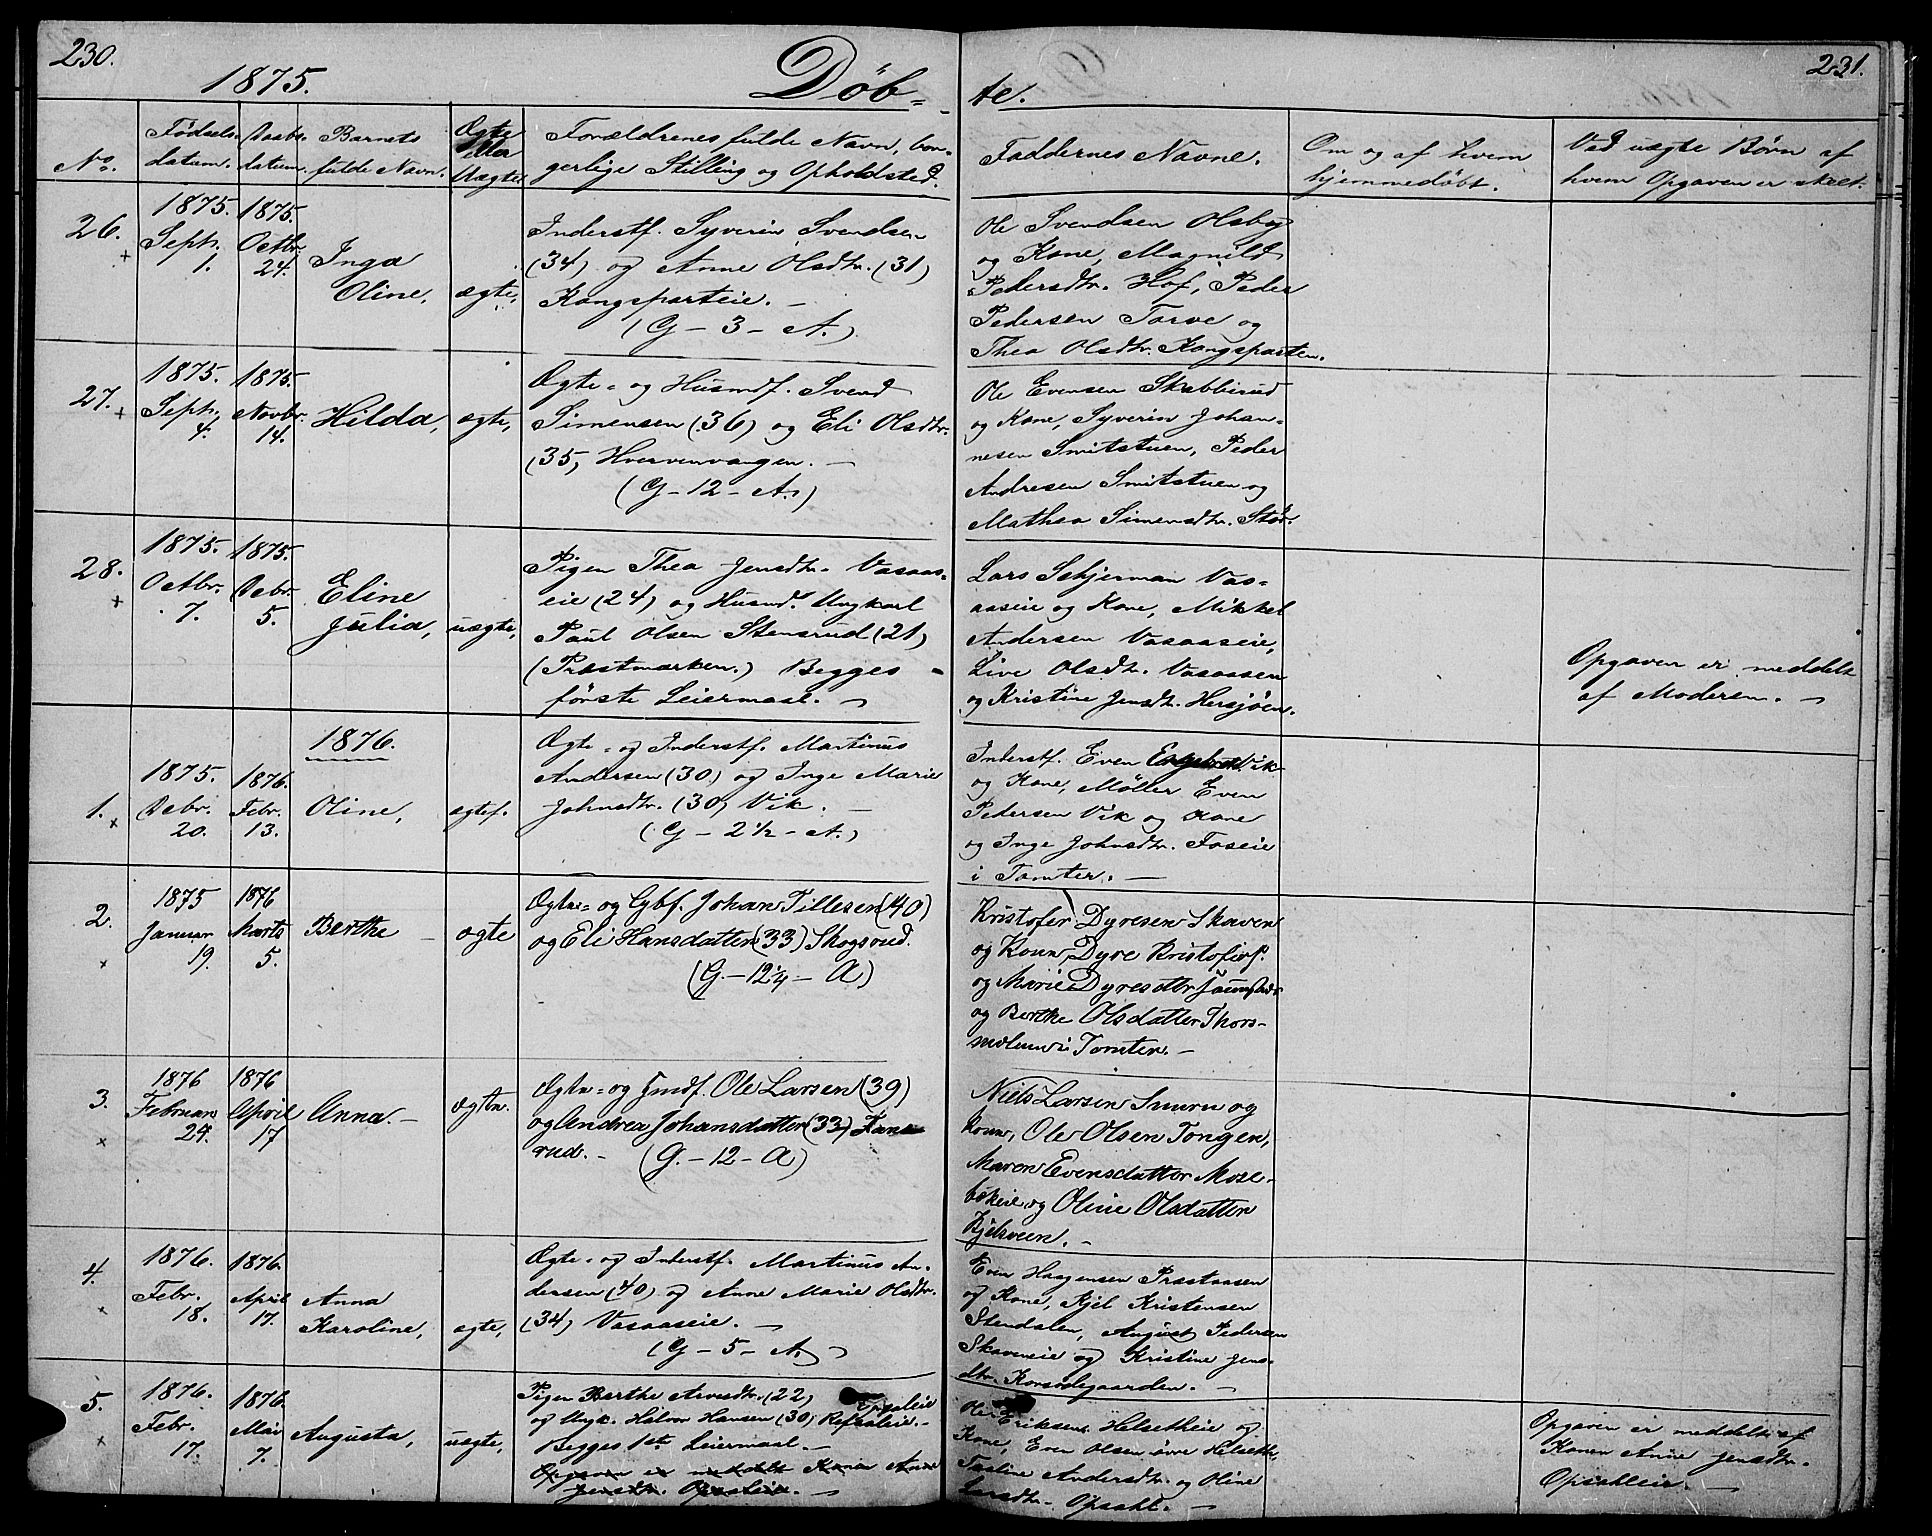 230.
1875.
Döb-
te.
231.
No.
Fødsels-
datum.
Daabs-
datum.
Barnets
fulde Navn.
Ægte
eller
Uægte
Forældrenes fulde Navn, bor-
gerlige Stilling og Opholdsted.
Faddernes Navne.
Om og af hvem
hjemmedøbt.
Ved uægte Børn af
hvem Opgaven er skeet.
26.
1875.
Septr.
1.
1875.
Octbr.
24.
Inga
Oline,
ægte,
Inderstf. Syverin Svendsen
(34) og Anne Olsdtr. (31)
Kongsparteie. -
(G - 3 - A.)
Ole Svendsen Olsby
og Kone, Magnild
Pedersdtr. Hof, Peder
Pedersen Torve og
Thea Olsdtr. Kongsparten.
27.
1875.
Septr.
4.
1875.
Novbr.
14.
Hilda,
ægte,
Ægte- og Husmdf. Svend
Simensen (36) og Eli Olsdtr.
(35) Hvervenvangen. -
(G - 12 - A.)
Ole Evensen Skebberud
og Kone, Syverin Johan-
nesen Smitstuen, Peder
Andresen Smitstuen og
Mathea Simensdtr. Stor.
28.
1875.
Octbr.
7.
1875.
Debr.
5.
Eline
Julia,
uægte,
Pigen Thea Jensdtr. Vasaas-
eie (24) og Husmd. Ungkarl
Paul Olsen Stensrud (21)
(Præstmarken.) Begges
förste Leiermaal. -
Lars Schjerman Vas-
aaseie og Kone, Mikkel
Andersen Vasaaseie,
Live Olsdtr. Vasaasen
og Kristine Jensdtr. Hersjøen.
Opgaven er meddelt
af Moderen. -
1876.
1.
1875.
Debr.
20.
1876.
Febr.
13.
Oline,
ægtef.
Ægte- og Inderstf. Martinus
Andersen (30) og Inge Marie
Johnsdtr. (30) Vik. -
(G - 2 1/2 - A.)
Inderstf. Even Vik
og Kone, Möller Even
Pedersen Vik og Kone
og Inge Johnsdtr. Foseie
i Tomter. -
2.
1875
Januar
19.
1876
Marts
5.
Berthe -
ægte
Ægte- og Gbf. Johan Tillesen (40)
og Eli Hansdatter (33) Skogsrud.
(G. - 12 1/4 - A)
Kristofer Dyresen Skaven
og Kone, Dyre Kristofers.
og Marie Dyresdtr
og Berthe Olsdatter Thors-
i Tomter. -
3.
1876
Februar
24.
1876
April
17
Anna. -
Ægte.
Ægte- og Jmdf. Ole Larsen (39)
og Andrea Johansdatter (33)
rud. - (G. - 12 - A)
Niels Larsen og
Kone, Ole Olsen Tongen,
Maren Evensdatter Mose-
og Oline Olsdatter
Kjelsveen. -
4.
1876.
Febr.
18.
1876.
April
17.
Anna
Karoline,
ægte,
Ægte- og Inderstf. Martinus An-
dersen (40) og Anne Marie Olsdtr.
(34) Vasaaseie. -
(G - 5 - A.)
Even Haagensen Præstaasen
og Kone, Kjel Kristensen
Stendalen, August Pedersen
Skaveneie og Kristine Jens-
dtr. Korsodegaarden. -
5.
1876.
Febr.
17.
1876.
Mai
7.
Augusta,
uægte,
Pigen Berthe Arnesdtr. (22)
og Ungk. Halvor Hansen (30) Refsaleie. -
Begges 1ste Leiermaal. -
Opgaven er meddelt Kone Anne
Jensdtr. Opsaleie. -
Ole Eriksen Helsetheie og
Kone, Even Olsen övre Helseth,
Tæline Andersdtr. og Oline
Larsdtr. Opsahl. -
Opgaven er meddelt af
Konen Anne Jensdtr.
Opsahleie. -